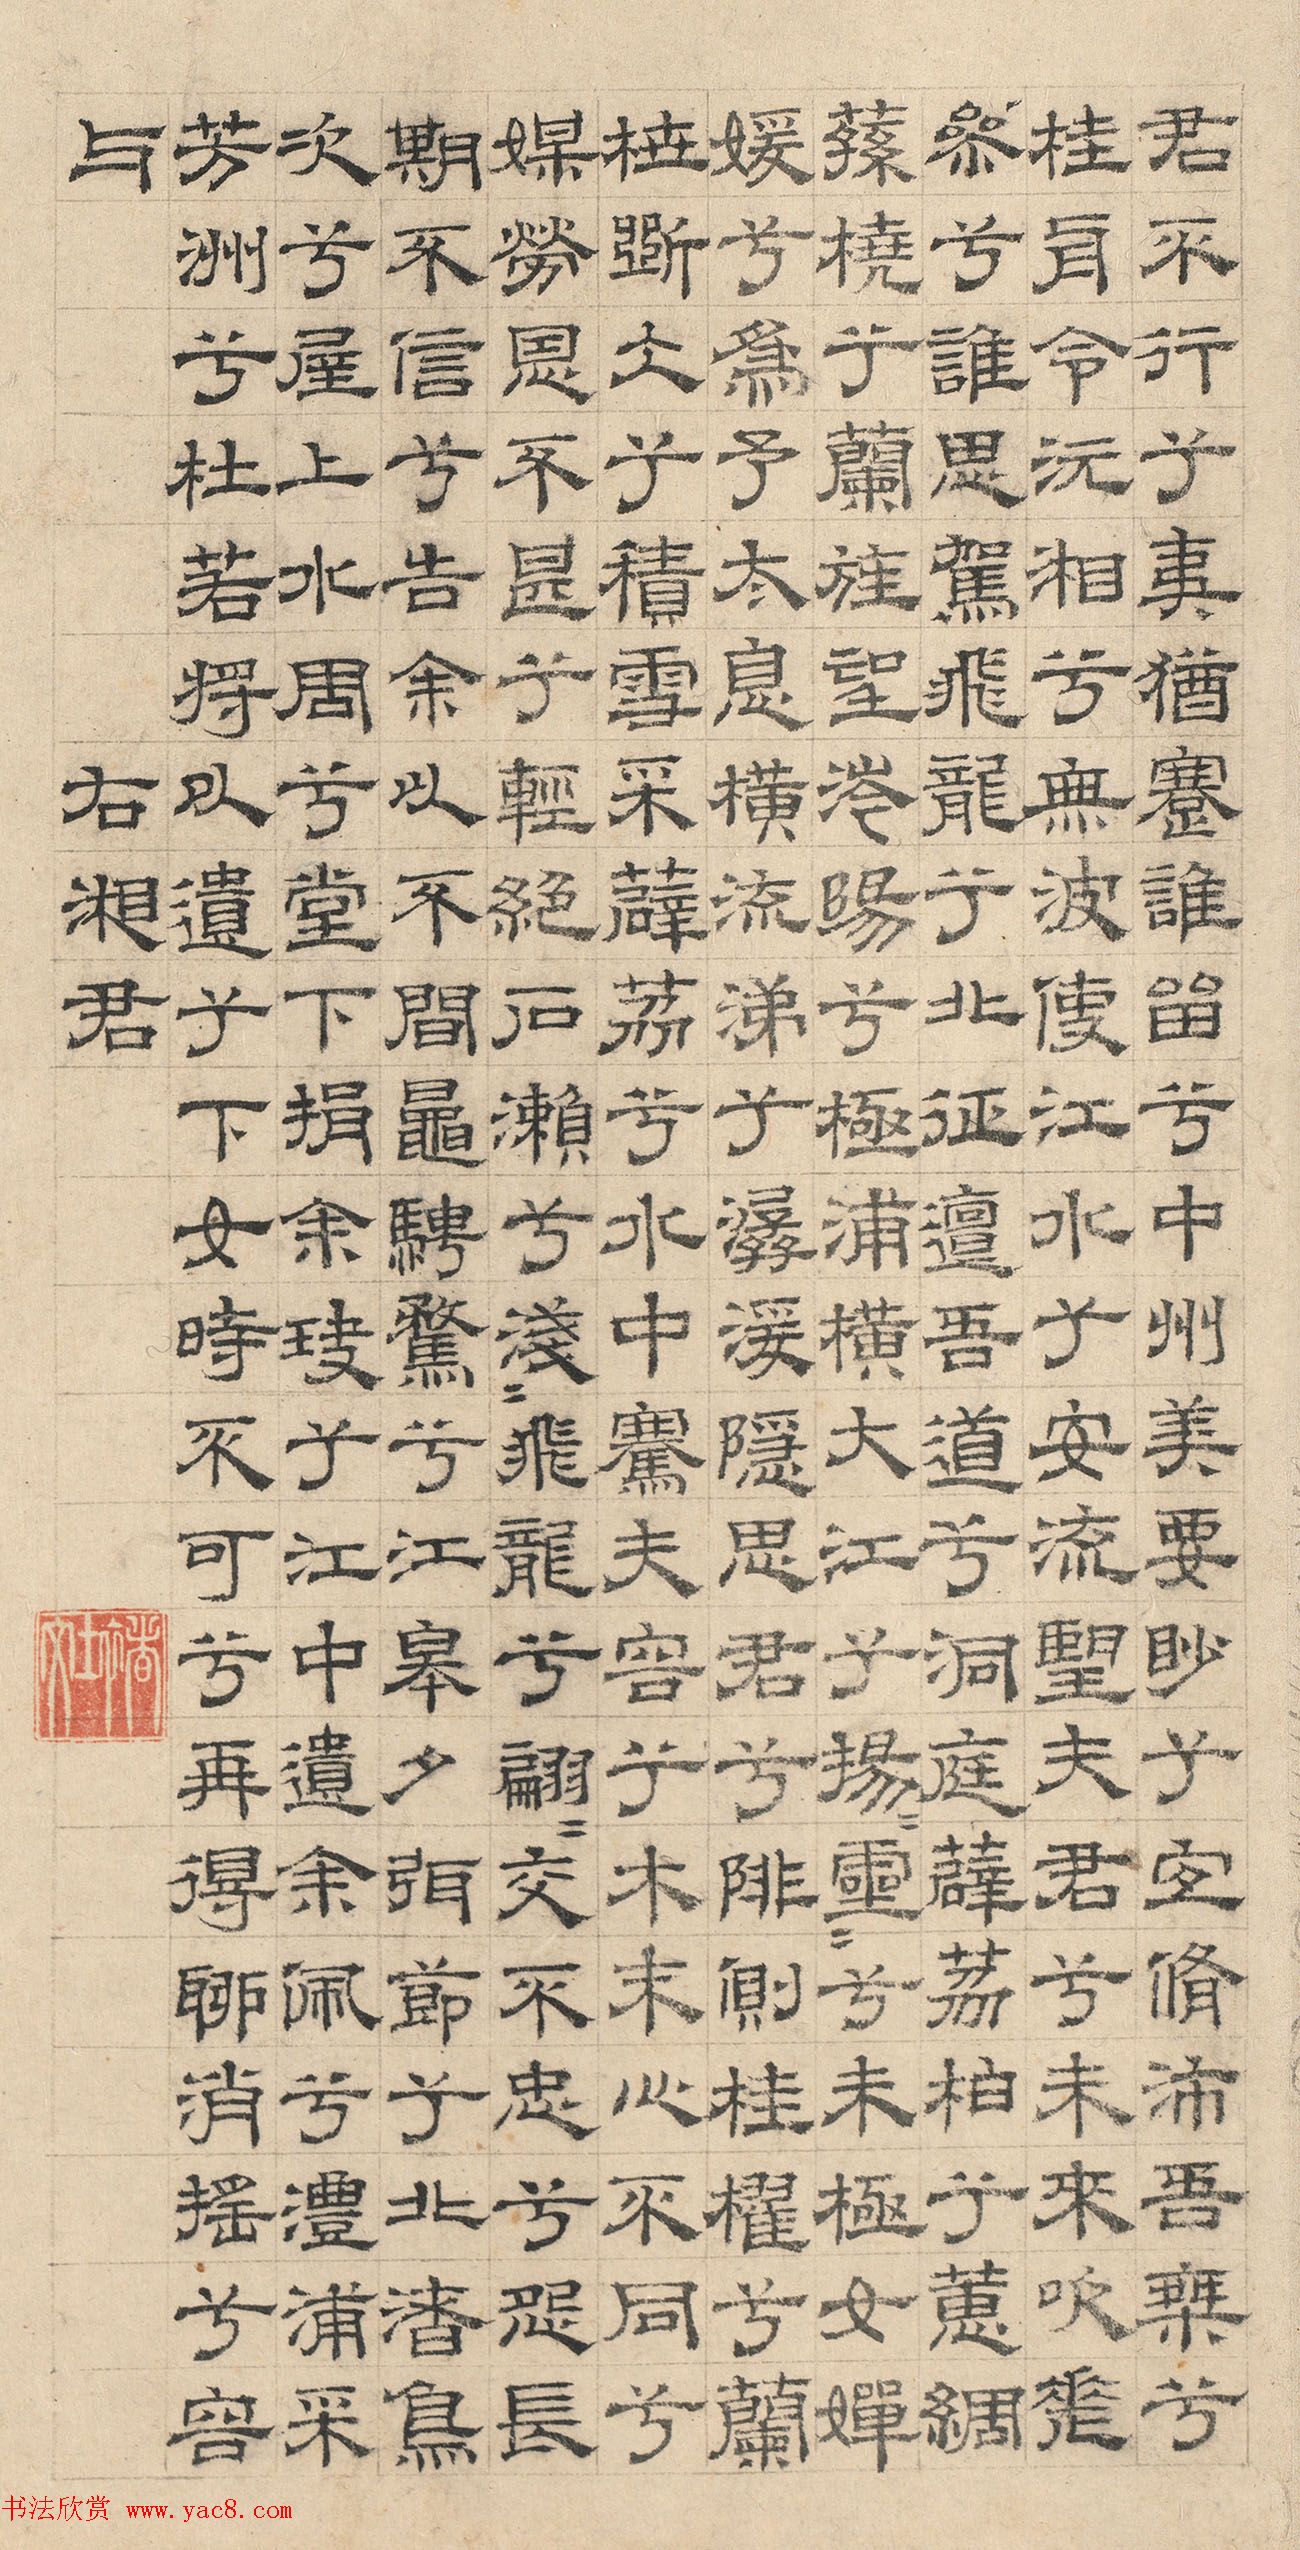 君不行兮夷猶蹇誰畱兮中州美要眇兮宜脩沛吾乘兮
桂舟令沅湘兮無波使江水兮安流朢夫君兮未來吹差
參兮誰思駕飛龍兮北征邅吾道兮洞庭薜荔柏兮蕙綢
蓀橈兮蘭旌望涔陽兮極浦橫大江兮揚〻靈〻兮未極女嬋
媛兮為予太息橫流涕兮潺湲隱思君兮陫側桂櫂兮蘭
枻斲仌兮積雪采薜荔兮水中騫夫容兮木末心不同兮
媒勞恩不甚兮輕絕石瀨兮淺〻飛龍兮翩〻交不忠兮怨長
期不信兮告余以不間鼂騁騖兮江皋夕弭節兮北渚鳥
次兮屋上水周兮堂下捐余玦兮江中遺余佩兮澧浦采
芳洲兮杜若將以遺兮下女時不可兮再得聊消搖兮容
与
右湘君
书法欣赏 www.yac8.com